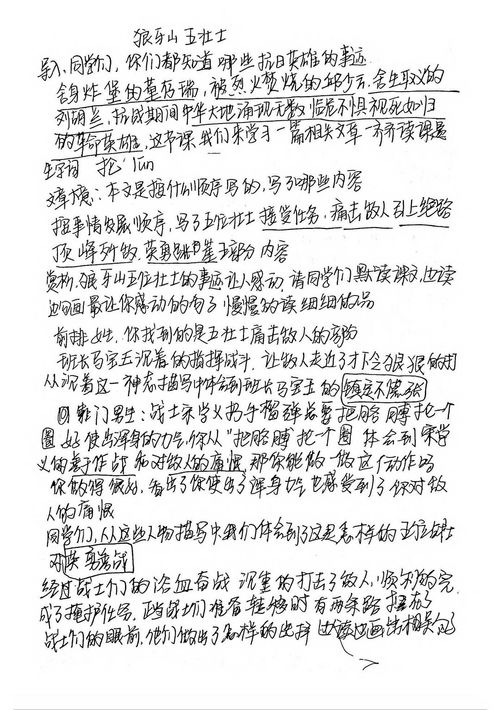 狼牙山五壮士
导入、同学们，你们都知道哪些抗日英雄的事迹
舍身炸堡的董存瑞，被烈火焚烧的邱少云，舍生取义的
刘胡兰，抗战期间中华大地涌现无数临危不惧视死如归
的革命英雄，这节课我们来学习一篇相关文章 齐齐读课题
生字词 抡 lūn
文章：本文是按什么顺序写的，写了哪些内容
按事情发展顺序，写了五位壮士接受任务，痛击敌人引上绝路
顶峰歼敌，英勇跳崖五部分内容
赏析，狼牙山五位壮士的事迹让人感动，请同学们默读课文，边读
边画最让你感动的句子 慢慢的读细细的品
前排女生，你找到的是五壮士痛击敌人的部分
班长马宝玉沉着的指挥战斗，让敌人走近了才下令狠狠的打
从沉着这一神态描写中体会到班长马宝玉的镇定不慌张
靠门男生：战士宋学义扔手榴弹总要把胳膊抡一个
圈 好使出浑身的力气，你从"把胳膊抡一个圈 体会到宋学
义的善于作战和对敌人的痛恨 那你能做一做这个动作吗
你做得很好，看出了你使出了浑身力气也感受到了你对敌
人的痛恨
同学们，从这些人物描写中我们体会到了这是怎样的五位战士
英勇善战
经过战士们的浴血奋战 沉重的打击了敌人，顺利的完
成了掩护任务，正当战士们准备转移时有两条路 摆在了
战士们的眼前，他们做出了怎样的选择 边读边画出相关句子